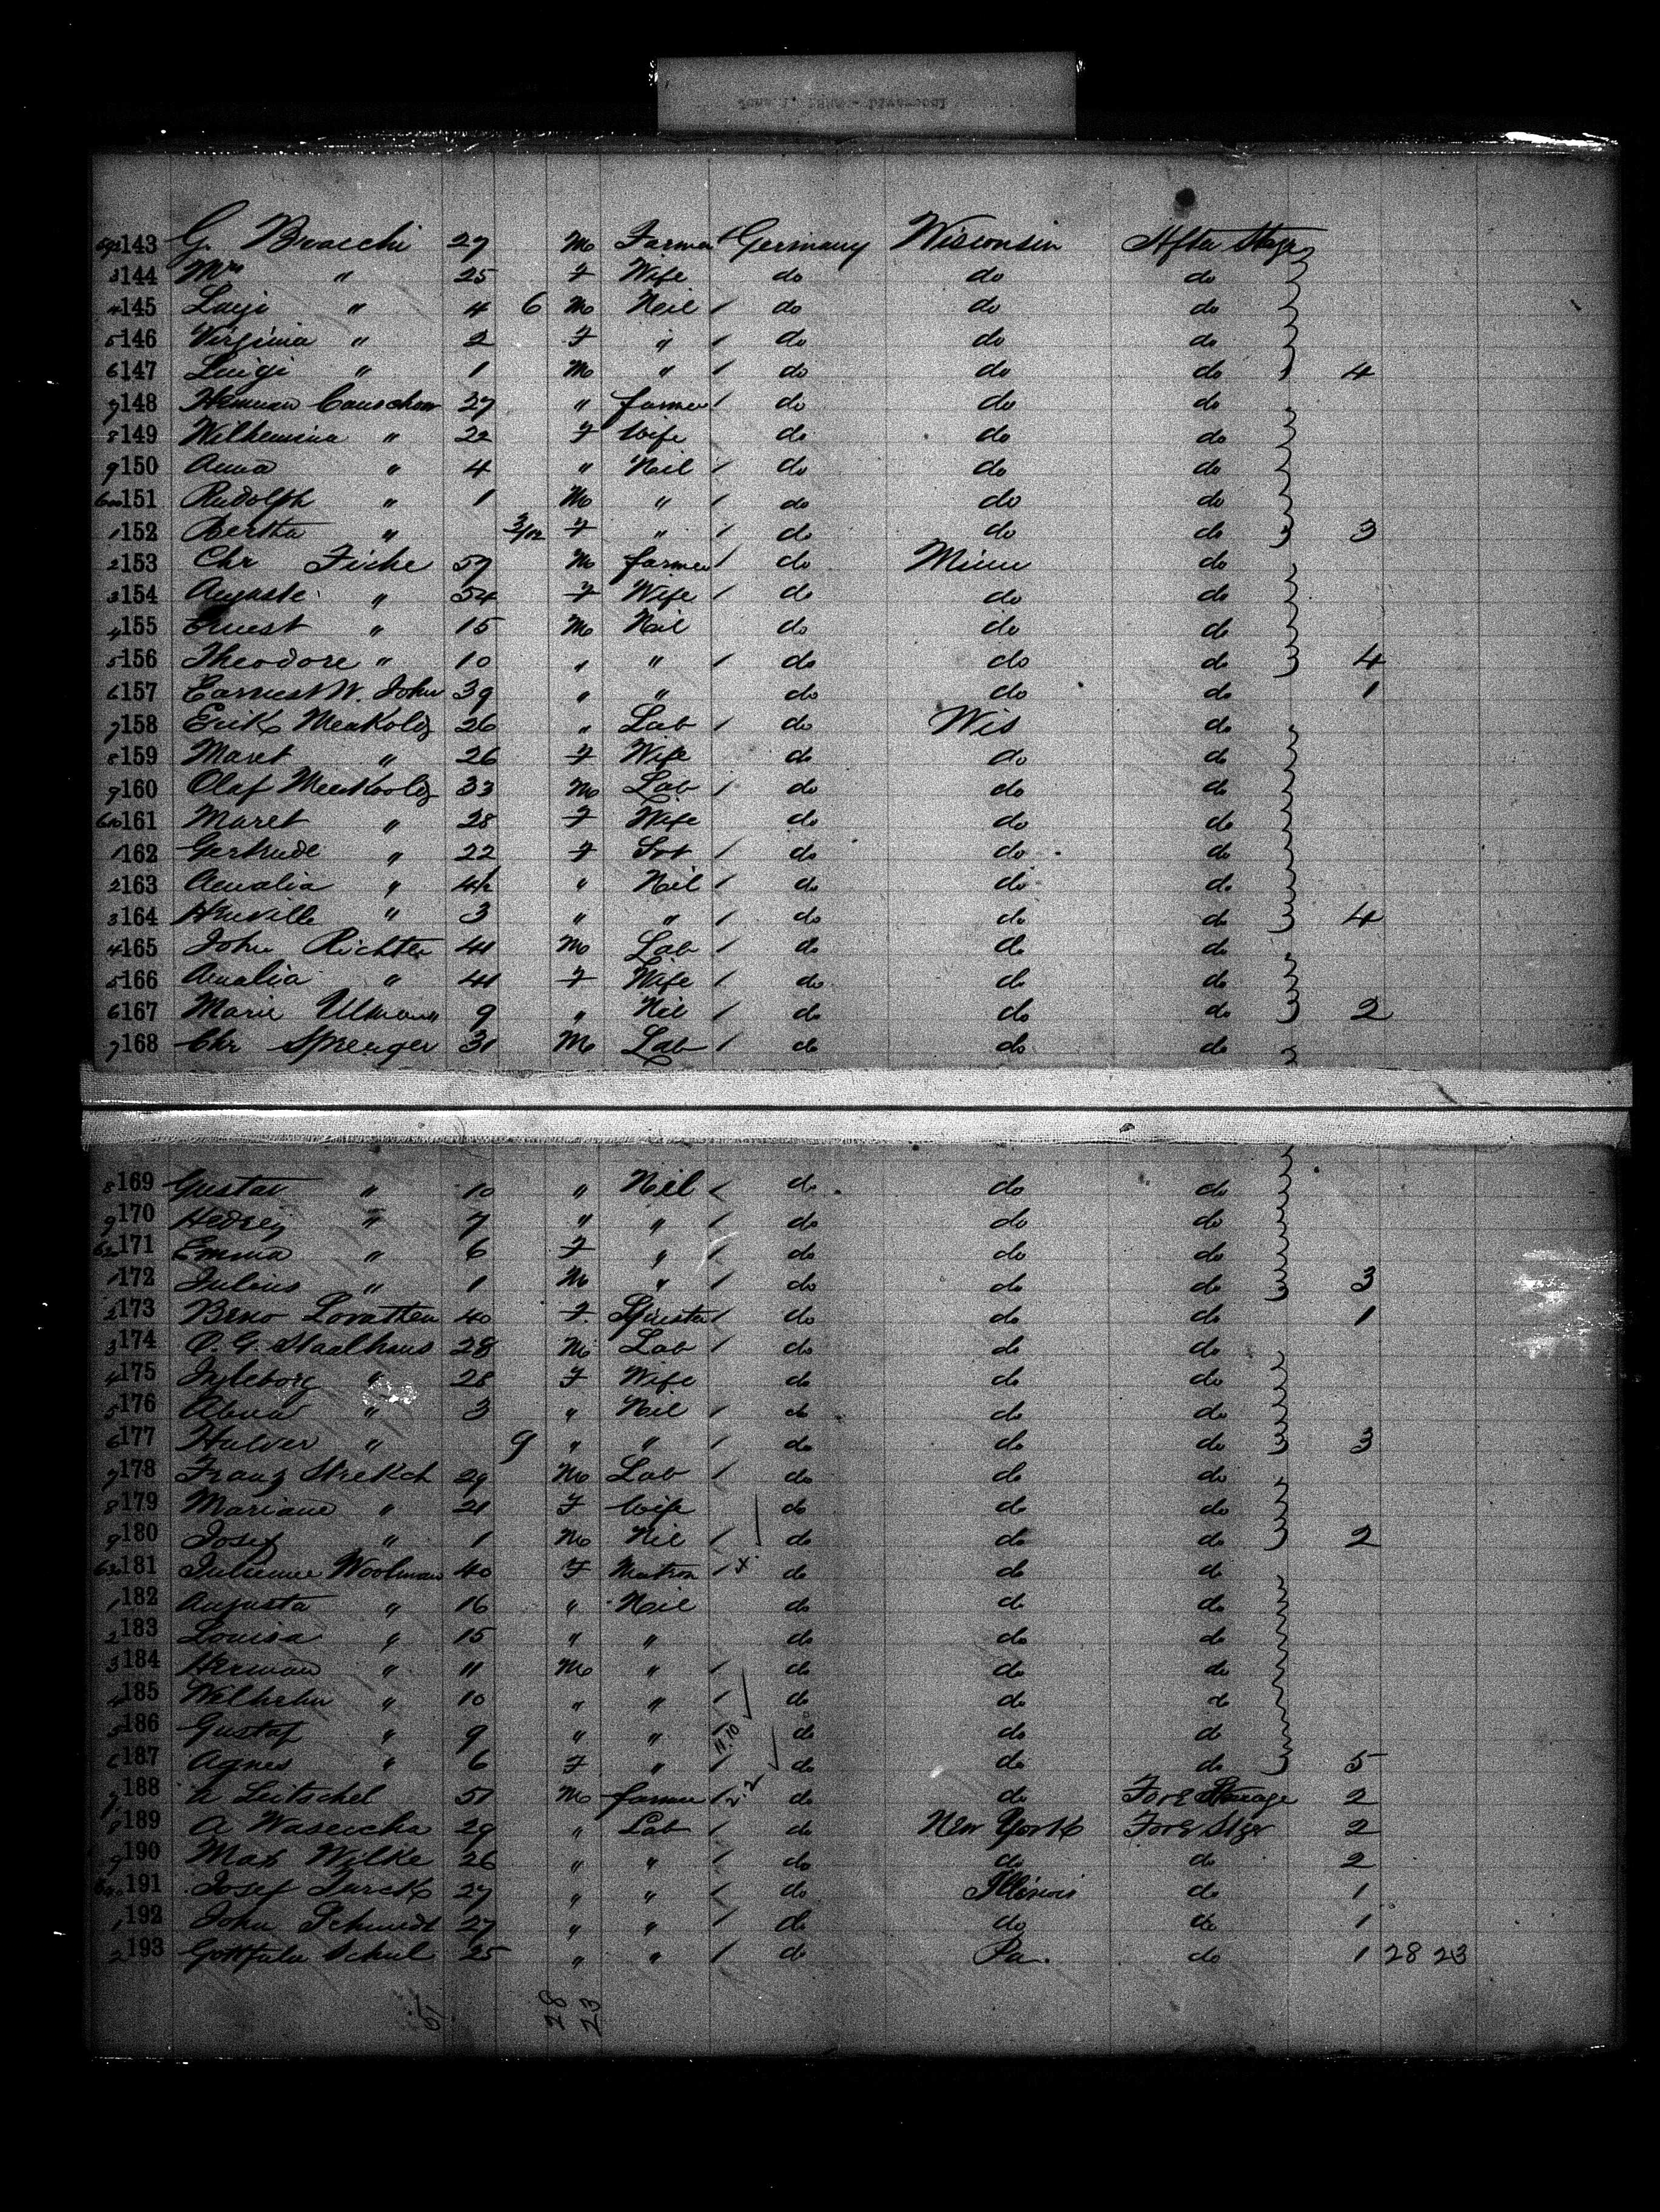 143 G. Bracchi 27 M Farmer Germany Wisconsin After Stage
144 Mrs " 25 F Wife do do do
145 Luigi " 4 6 M Neil do do do
146 Virginia " 2 F " do do do
147 Luigi " 1 M " do do do 4
148 Herman 27 " farmer do do do
149 Wilhemina " 22 F Wife do do do
150 Anna " 4 " Neil do do do
151 Rudolph " 1 M " do do do
152 Bertha " 3/12 F " do do do 3
153 Chr Fiche 59 M farmer do Minn do
154 Auguste " 54 F Wife do do do
155 Ernest " 15 M Neil do do do
156 Theodore " 10 " " do do do 4
157 Earnest W. John 39 " " do do do 1
158 Erik 26 " Lab do Wis do
159 Maret " 26 F Wife do do do
160 Olaf 33 M Lab do do do
161 Maret " 28 F Wife do do do
162 Gertrude " 22 F do do do
163 Amalia " 4 1/2 " Neil do do do
164 " 3 " " do do do 4
165 John Richter 41 M Lab do do do
166 Amalia " 41 F Wife do do do
167 Marie Ulmann 9 " Neil do do do 2
168 Chr Sprenger 31 M Lab do do do
169 Gustav " 10 " Neil do do do
170 " 7 " " do do do
171 Emma " 6 F " do do do
172 Julius " 1 M " do do do 3
173 Lorathen 40 F. Spinster do do do 1
174 O. G. Staalhaus 28 M Lab do do do
175 Ingleborg " 28 F Wife do do do
176 " 3 " Neil do do do
177 Halver " 9 " " do do do 3
178 Franz Stretch 29 M Lab do do do
179 Mariane " 21 F Wife do do do
180 Josef " 1 M Neil do do do 2
181 Woolman 40 F Matron x do do do
182 Augusta " 16 " Neil do do do
183 Louisa " 15 " " do do do
184 Herman " 11 M " do do do
185 Wilhelm " 10 " " do do do
186 Gustaf " 9 " " 11.10 do do do
187 Agnes " 6 F " do do do 5
188 Leitschel 51 M farmer 2.2 do do Fore Sterage 2
189 A Waseicha 29 " Lab do New York Fore Stge 2
190 Max Wilke 26 " " do do do 2
191 Josef Turck 27 " " do Illinois do 1
192 John Schmidt 27 " " do do do 1
193 Schul 25 " " do Pa. do 1 28 23
28
23